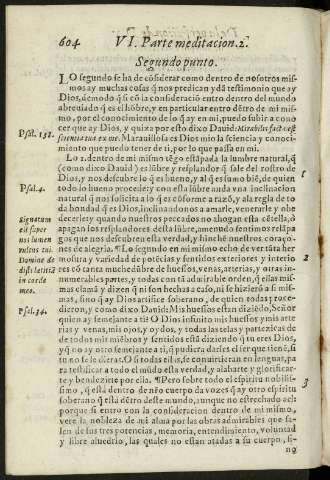 604 VI. Parte meditacion. 2.
Segundo punto.
LO segundo se ha de cõsiderar como dentro de nosotros mis-
mos ay muchas cosas q̃ nos predican y dã testimonio que ay
Dios, demodo q̃ si cõ la consideraciõ entro dentro del mundo
abreuiado q̃ es el hõbre, y en particular entro dẽtro de mi mis-
mo, por el conocimiento de lo q̃ ay en mi, puedo subir a cono
cer que ay Dios, y quita por esto dixo Dauid: Mirabilis facta est
Psal. 138.
scientia tua ex me. Marauillosa es Dios mio la sciencia y conoci-
miento que puedo tener de ti, por lo que passa en mi.
Lo 1. dentro de mi mismo tẽgo estãpada la lumbre natural, q̃
(como dixo Dauid) es lũbre y resplãdor q̃ sale del rostro de
Psal. 4.
Dios, y nos descubre lo q̃ es bueno, y al q̃ es sumo biẽ, de quien
todo lo bueno procede: y con esta lũbre anda vna inclinacion
natural q̃ nos solicita a lo q̃ es cõforme a razõ, y a la regla de to
da bondad q̃ es Dios, inclinandonos a amarle, venerarle y obe
Signatum
decerle: y quando nuestros pecados no ahogan esta cẽtella, ò
est super
apagan los resplandores desta lũbre, amenudo sentimos relãpa
nos lumen
gos que nos descubren esta verdad, y hinchẽ nuestros coraço-
vultus tui.
nes de alegria. ¶Lo segundo en mi mismo echo de ver tãta her
Domine de
mosura y variedad de potẽcias y sentidos exteriores y interio
2
disti lætitiã
res cõ tanta muchedũbre de huessos, venas, arterias, y otras in-
in corde
numerables partes, y todas con tã admirable orden, q̃ ellas mis-
meo.
mas clamã y dizen q̃ ni son hechas a caso, ni se hizierõ a si mis-
mas, sino q̃ ay Dios artifice soberano, de quien todas proce-
Psal. 34.
dieron, y como dixo Dauid: Mis huessos estan diziẽdo, Señor
quien ay semejante a ti? O Dios infinito mis huessos y mis arte
rias y venas, mis ojos, y oydos, y todas las telas y partezicas de
de todos mis miẽbros y sentidos està diziendo q̃ tu eres Dios,
y q̃ no ay otro semejante a ti, q̃ pudiera darles el ser que tienẽ, si
tu no se le dieras. O si todas ellas, se conuirtieran en lenguas, pa
ra testificar a todo el mũdo esta verdad, y alabarte y glorificar-
te y bendezirte por ella. ¶Pero sobre todo el espiritu nobilis-
3
simo, q̃ està dentro de nr̃o cuerpo da vozes q̃ ay otro espiritu
soberano q̃ està dẽtro deste mundo, aunque no estrechado acà
porque si entro con la consideracion dentro de mi mismo,
vere la nobleza de mi alma por las obras admirables que sa-
len de sus tres potencias, memoria, entendimiento, voluntad
y libre aluedrio, las quales no estan atadas a su cuerpo, si-
no